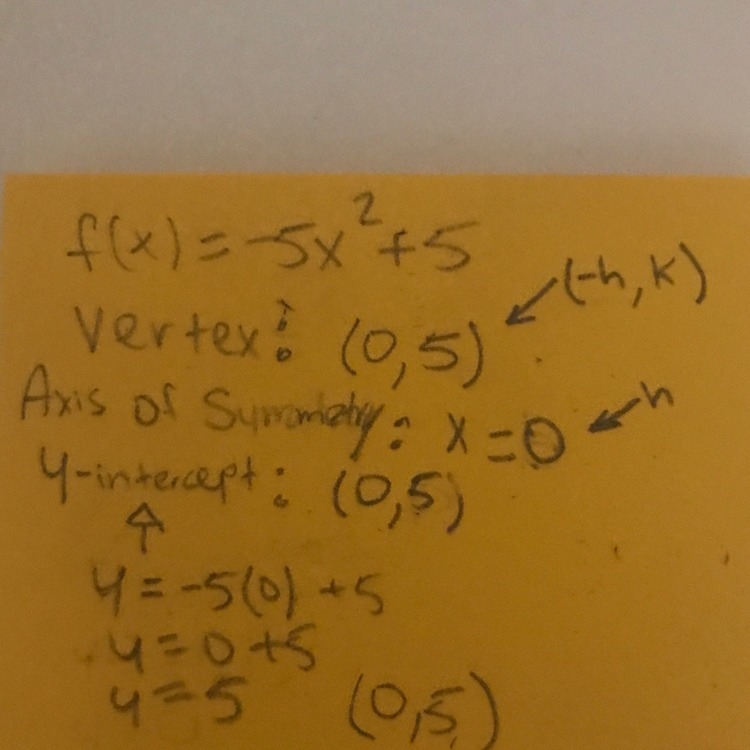 f(x) = -5x² + 5
Vertex: (0,5) ↙ (-h, k)
Axis of Symmetry: x = 0 ← h
y-intercept: (0,5)
↑
y = -5(0) + 5
y = 0 + 5
y = 5 (0,5)